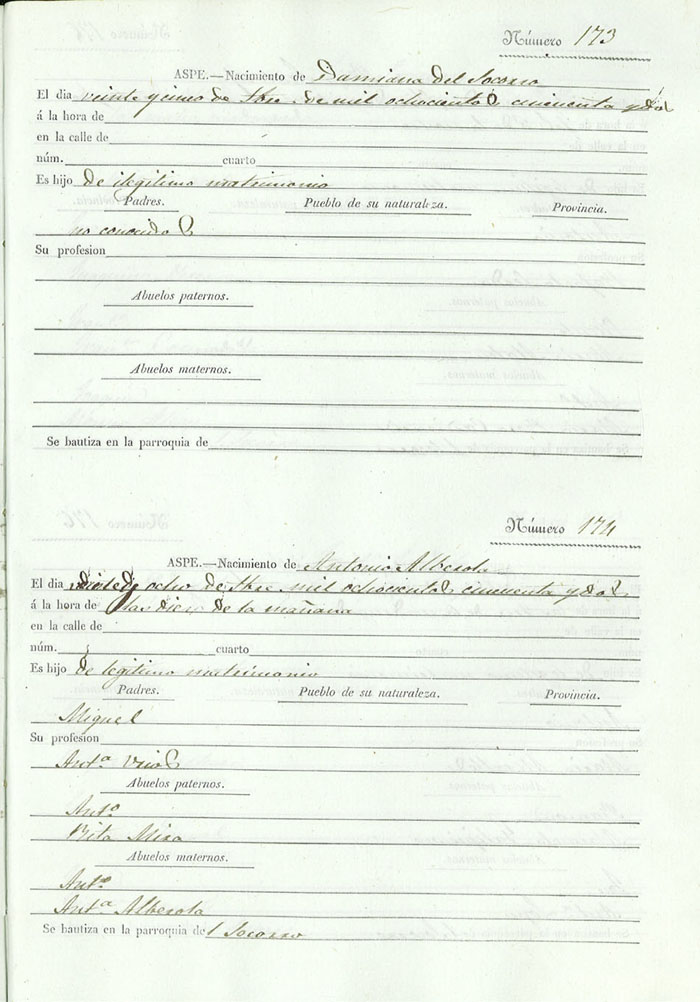 Número 173
ASPE.—Nacimiento de Damiana del Socorro
El dia veinte y cinco de tbre. de mil ochocientos cincuenta y dos
á la hora de
en la calle de
núm. cuarto
Es hijo de ilegitimo matrimonio
Padres. Pueblo de su naturaleza. Provincia.
no conocidos
Su profesion
Abuelos paternos.
Abuelos maternos.
Se bautiza en la parroquia de
Número 174
ASPE.—Nacimiento de Antonio Alberola
El dia veinte y ocho de tbre mil ochocientos cincuenta y dos
á la hora de las diez de la mañana
en la calle de
núm. cuarto
Es hijo de legitimo matrimonio
Padres. Pueblo de su naturaleza. Provincia.
Miguel
Su profesion
Antª
Abuelos paternos.
Antº
Rita Mira
Abuelos maternos.
Antº
Antª Alberola
Se bautiza en la parroquia del Socorro